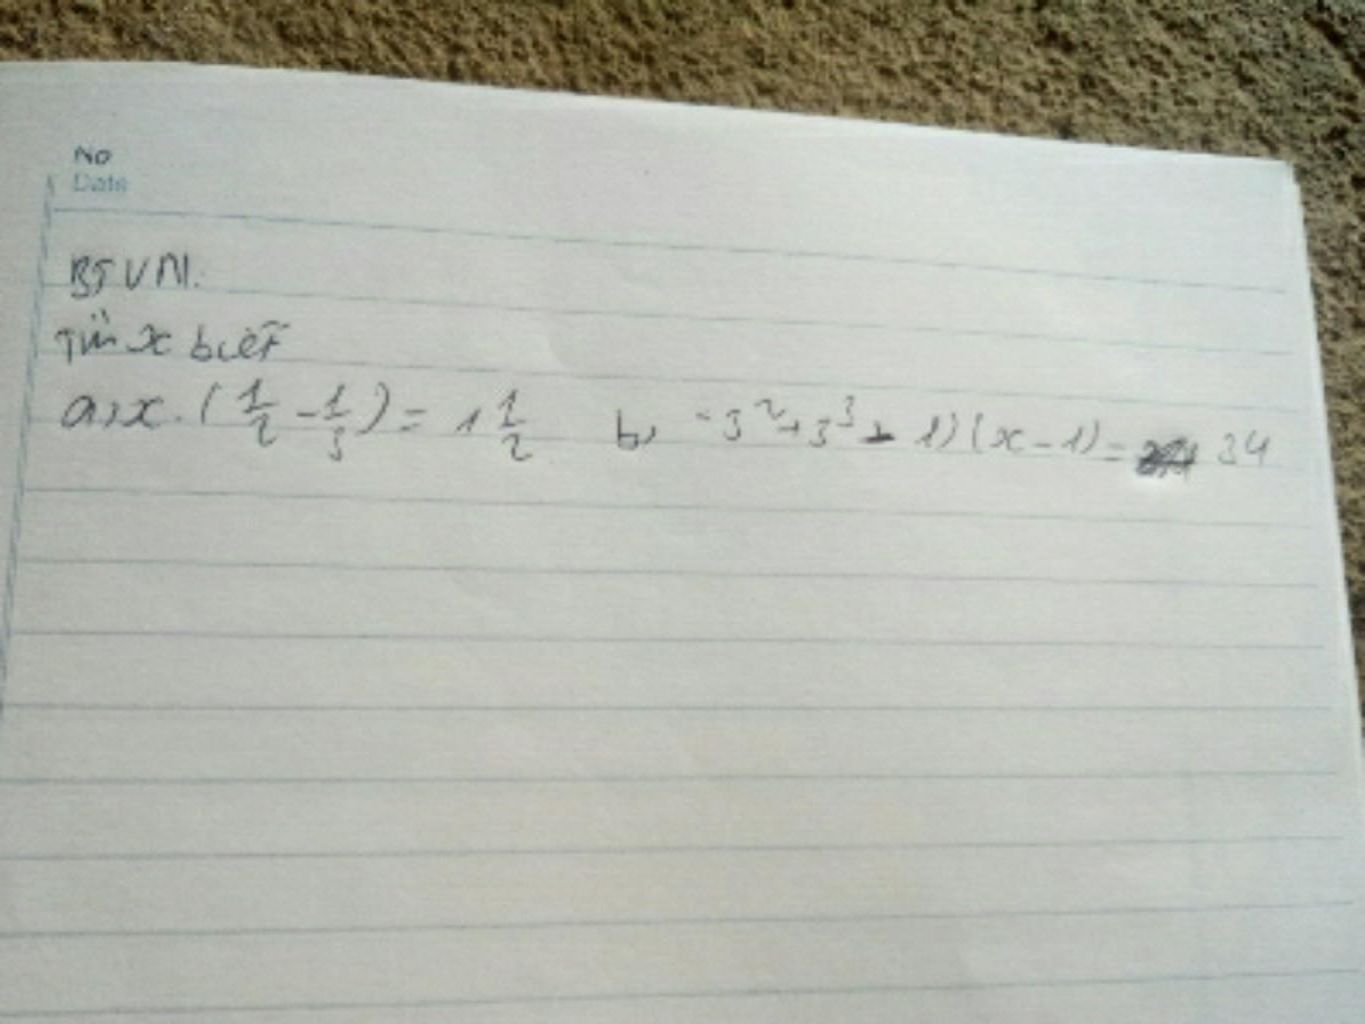 No
Date
BTVN.
Tìm x biết
a, x . ( 1/2 - 1/3 ) = 1 1/2 b, -3² + 3³ + 1) (x - 1) = 34